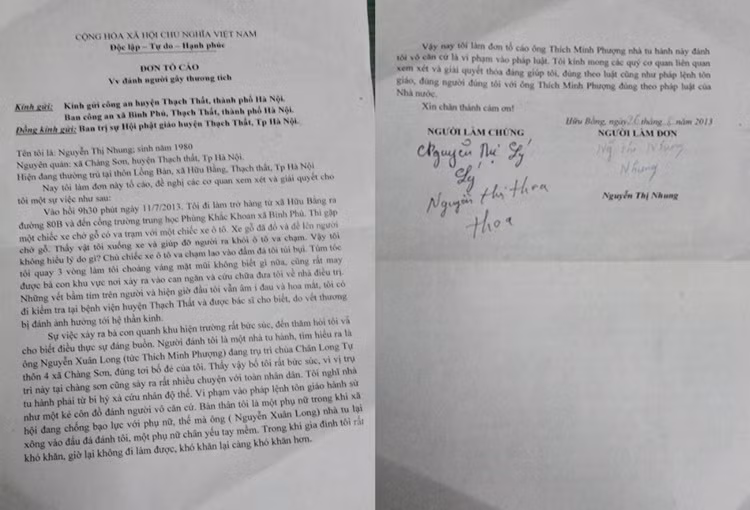 CỘNG HÒA XÃ HỘI CHỦ NGHĨA VIỆT NAM
Độc lập – Tự do – Hạnh phúc
ĐƠN TỐ CÁO
Vv đánh người gây thương tích
Kính gửi: Kính gửi công an huyện Thạch Thất, thành phố Hà Nội.
Ban công an xã Bình Phú, Thạch Thất, thành phố Hà Nội.
Đồng kính gửi: Ban trị sự Hội phật giáo huyện Thạch Thất, Tp Hà Nội.
Tên tôi là: Nguyễn Thị Nhung; sinh năm 1980
Nguyên quán: xã Chàng Sơn, huyện Thạch thất, Tp Hà Nội.
Hiện đang thường trú tại thôn Lồng Bàn, xã Hữu Bằng, Thạch thất, Tp Hà Nội
Nay tôi làm đơn này tố cáo, đề nghị các cơ quan xem xét và giải quyết cho
tôi một sự việc như sau:
Vào hồi 9h30 phút ngày 11/7/2013. Tôi đi làm trở hàng từ xã Hữu Bằng ra
đường 80B và đến cổng trường trung học Phùng Khắc Khoan xã Bình Phú. Thì gặp
một chiếc xe chở gỗ có va trạm với một chiếc xe ô tô. Xe gỗ đã đổ và đè lên người
chở gỗ. Thấy vật tôi xuống xe và giúp đỡ người ra khỏi ô ta va chạm. Vậy tôi
không hiểu lý do gì? Chủ chiếc xe ô tô va chạm lao vào đấm đá tôi túi bụi. Túm tóc
tôi quay 3 vòng làm tôi choáng váng mặt mũi không biết gì nữa, cũng rất may
được bà con khu vực nơi xảy ra vào can ngăn và cứu chữa đưa tôi về nhà điều trị.
Những vết bầm tím trên người và hiện giờ đầu tôi vẫn âm ỉ đau và hoa mắt, tôi có
đi kiểm tra tại bệnh viện huyện Thạch Thất và được bác sĩ cho biết, do vết thương
bị đánh ảnh hưởng tới hệ thần kinh.
Sự việc xảy ra bà con quanh khu hiện trường rất bức súc, đến thăm hỏi tôi và
cho biết điều thực sự đáng buồn. Người đánh tôi là một nhà tu hành, tìm hiểu ra là
ông Nguyễn Xuân Long (tức Thích Minh Phượng) đang trụ trì chùa Chân Long Tự
thôn 4 xã Chàng Sơn, đúng tơi bố đẻ của tôi. Thấy vậy bố tôi rất bức súc, vì vị trụ
trì này tại chàng sơn cũng sảy ra rất nhiều chuyện với toàn nhân dân. Tôi nghĩ nhà
tu hành phải từ bi hỷ xả cứu nhân độ thế. Vi phạm vào pháp lệnh tôn giáo hành sử
như một kẻ côn đồ đánh người vô căn cứ. Bản thân tôi là một phụ nữ trong khi xã
hội đang chống bạo lực với phụ nữ, thế mà ông ( Nguyễn Xuân Long) nhà tu lại
xông vào đấu đá đánh tôi, một phụ nữ chân yếu tay mềm. Trong khi gia đình tôi rất
khó khăn, giờ lại không đi làm được, khó khăn lại càng khó khăn hơn.
Vậy nay tôi làm đơn tố cáo ông Thích Minh Phượng nhà tu hành này đánh
tôi vô căn cứ là vi phạm vào pháp luật. Tôi kính mong các quý cơ quan liên quan
xem xét và giải quyết thỏa đáng giúp tôi, đúng theo luật cũng như pháp lệnh tôn
giáo, đúng người đúng tội với ông Thích Minh Phượng đúng theo pháp luật của
Nhà nước.
Xin chân thành cảm ơn!
Hữu Bằng, ngày tháng năm 2013
NGƯỜI LÀM CHỨNG
NGƯỜI LÀM ĐƠN
Nguyễn Thị Lý
Lý
Nguyễn thị thoa
thoa
Nhung
Nguyễn Thị Nhung